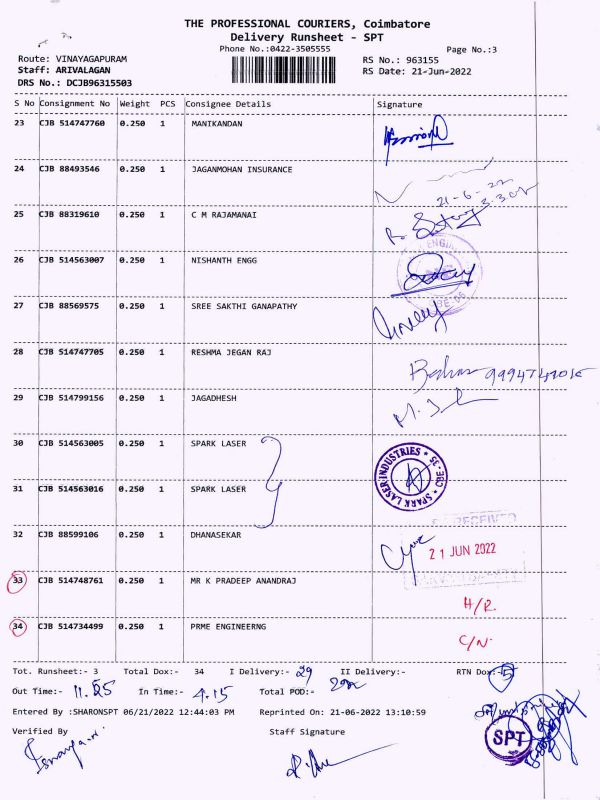 THE PROFESSIONAL COURIERS, Coimbatore
Delivery Runsheet - SPT
Phone No.:0422-3505555
Page No.:3
Route: VINAYAGAPURAM
RS No.: 963155
Staff: ARIVALAGAN
RS Date: 21-Jun-2022
DRS No.: DCJB96315503
S No Consignment No Weight PCS Consignee Details Signature
23 CJB 514747760 0.250 1 MANIKANDAN
24 CJB 88493546 0.250 1 JAGANMOHAN INSURANCE
21-6-22
25 CJB 88319610 0.250 1 C M RAJAMANAI
26 CJB 514563007 0.250 1 NISHANTH ENGG
27 CJB 88569575 0.250 1 SREE SAKTHI GANAPATHY
28 CJB 514747705 0.250 1 RESHMA JEGAN RAJ
29 CJB 514799156 0.250 1 JAGADHESH
30 CJB 514563005 0.250 1 SPARK LASER
SPARK LASER INDUSTRIES * CBE - 35 *
31 CJB 514563016 0.250 1 SPARK LASER
RECEIVED
32 CJB 88599106 0.250 1 DHANASEKAR
21 JUN 2022
33 CJB 514748761 0.250 1 MR K PRADEEP ANANDRAJ
H/R.
34 CJB 514734499 0.250 1 PRME ENGINEERNG
C/N.
Tot. Runsheet:- 3 Total Dox:- 34 I Delivery:- 29 II Delivery:- RTN Dox:- 5
Out Time:- 11.55 In Time:- 4.15 Total POD:-
Entered By :SHARONSPT 06/21/2022 12:44:03 PM Reprinted On: 21-06-2022 13:10:59
Verified By Staff Signature
SPT